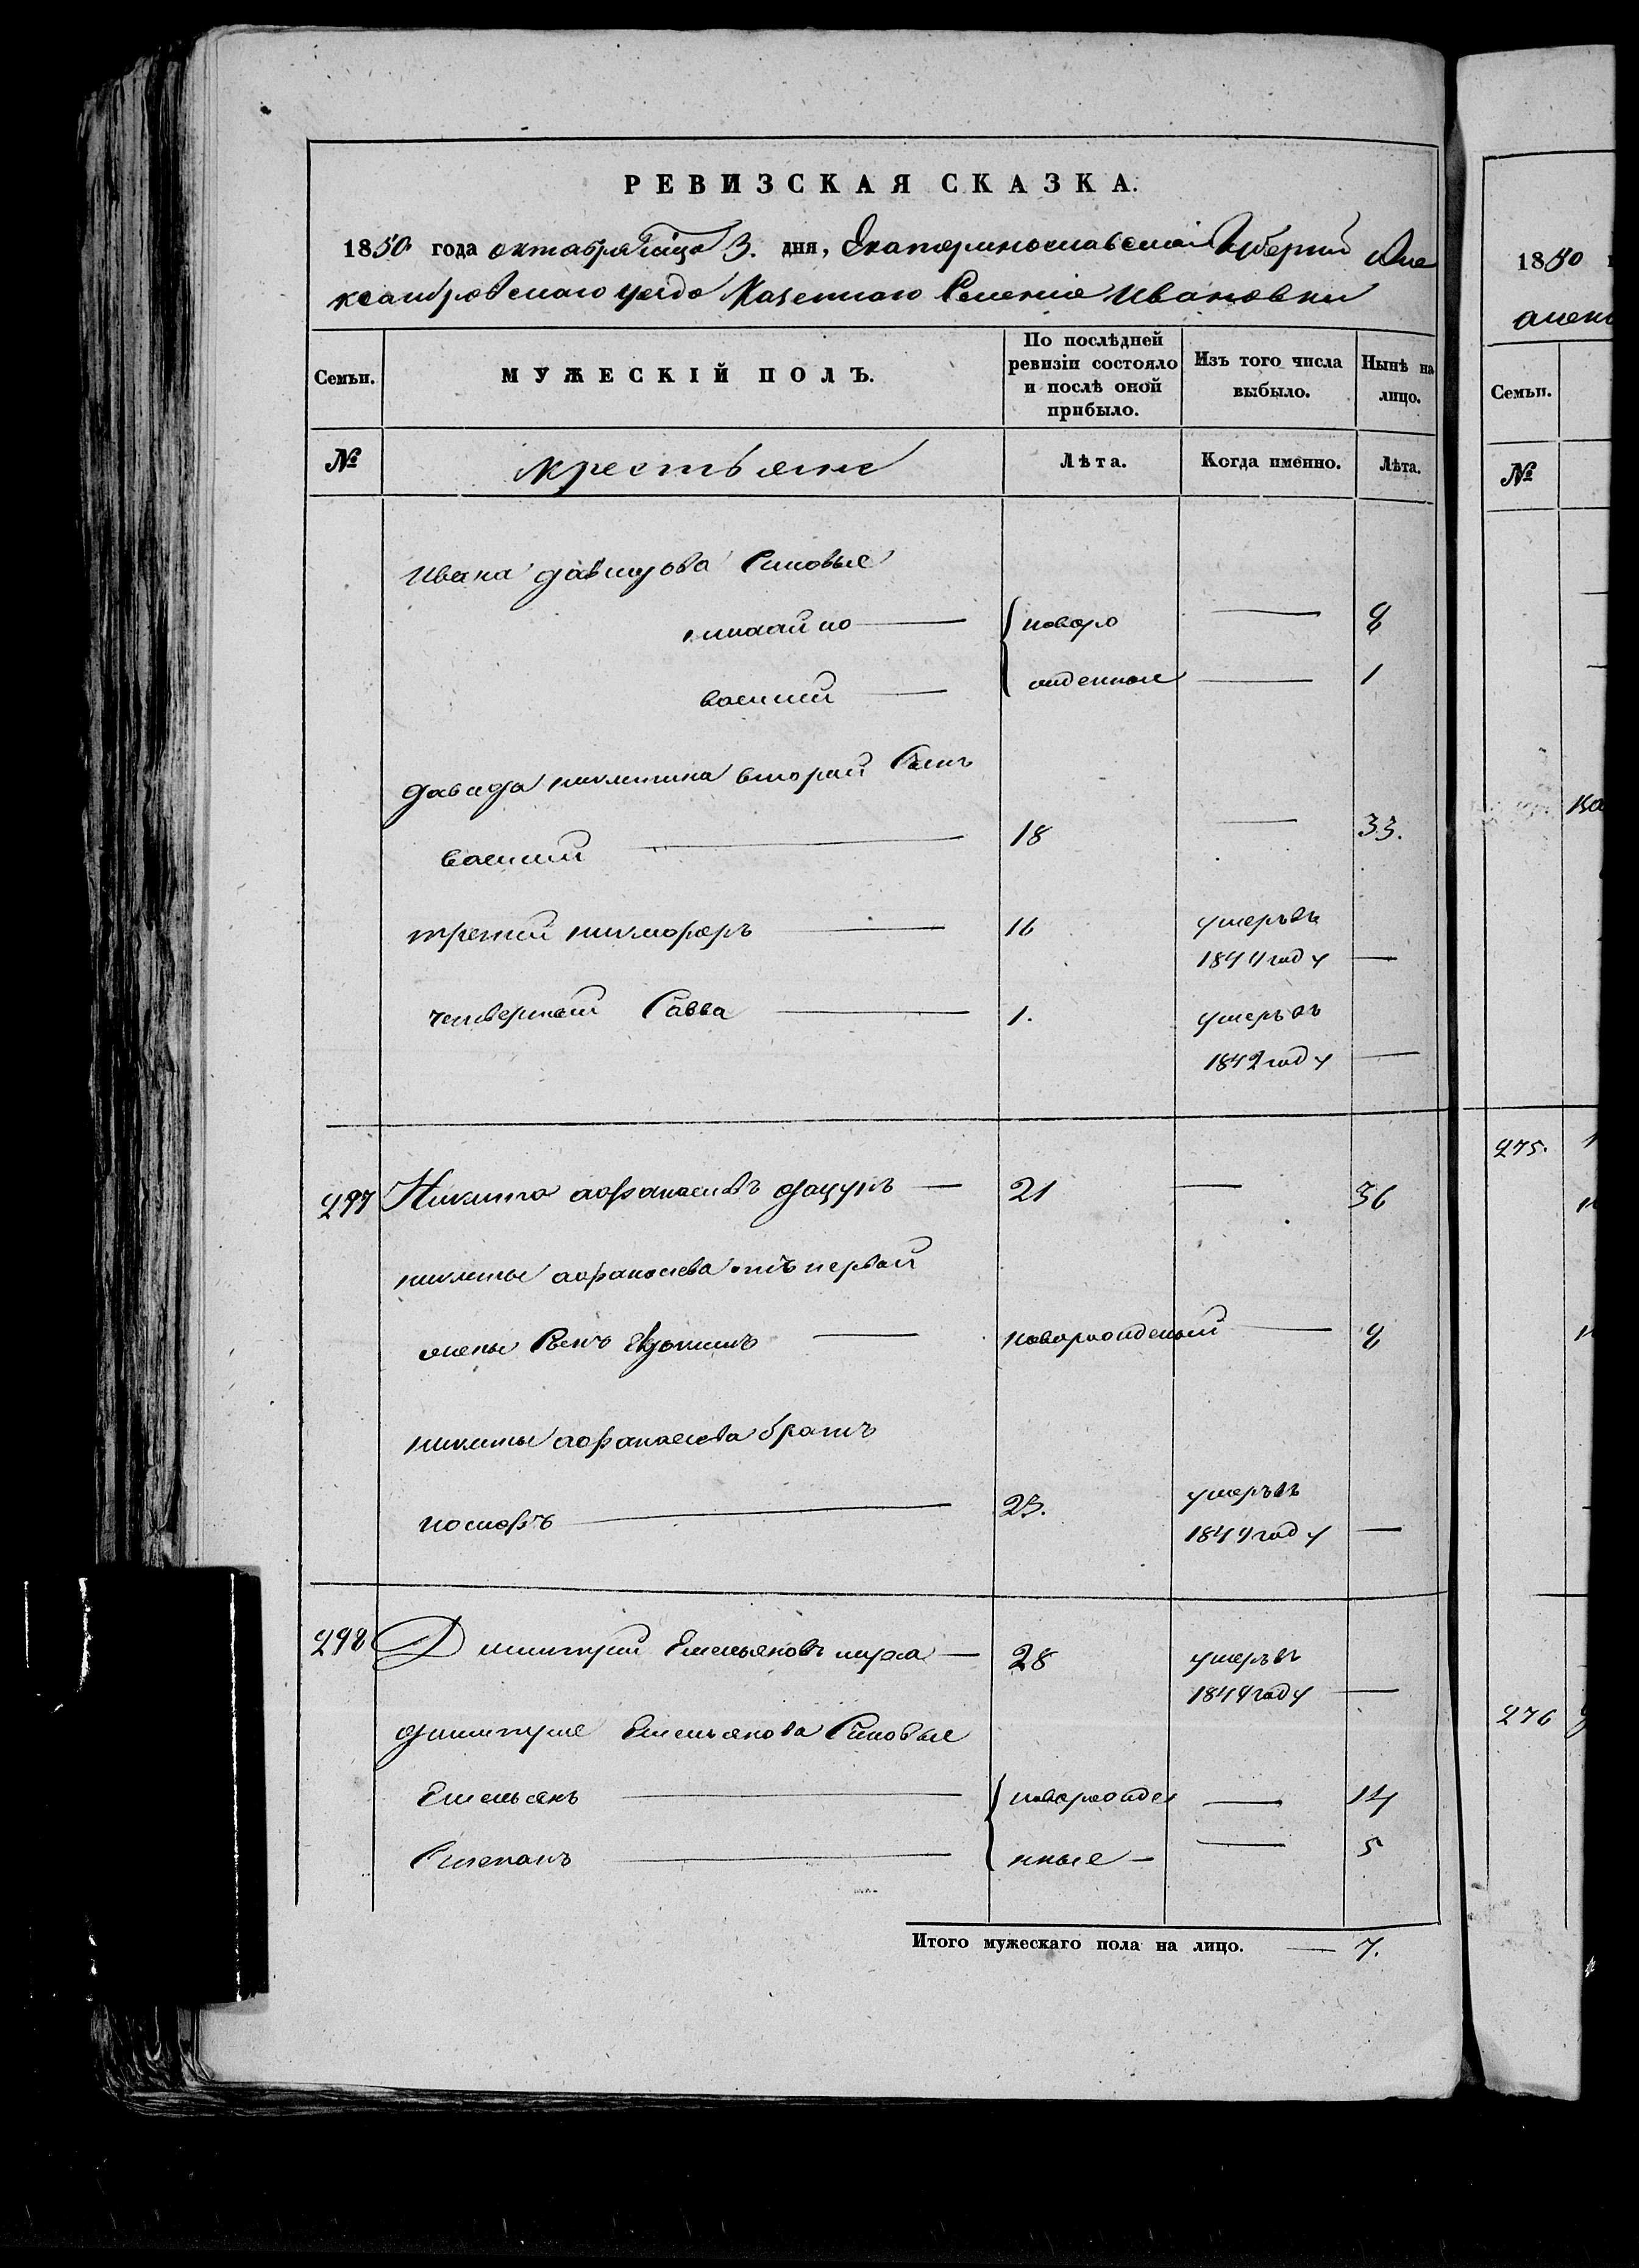 РЕВИЗСКАЯ СКАЗКА.
1850 года октября месяца 3. дня, Екатеринославской Губернии Але
ксандровскаго уезда Казеннаго Селения Ивановки
Семьи.
МУЖЕСКІЙ ПОЛЪ.
По послѣдней ревизіи состояло и послѣ оной прибыло.
Изъ того числа выбыло.
Нынѣ на лицо.
№
крестьяне
Лѣта.
Когда именно.
Лѣта.
Ивана давидова Сыновья
михайло — новоро — 8
василий — жденные — 1
давида никитина второй Сынъ
василий — 18 — 33.
третий никифоръ — 16 умеръ въ
1844 году —
четвертый Савва — 1. умеръ въ
1842 году —
297 Никита афанасиевъ дацукъ — 21 — 36
никиты афанасиева отъ первой
жены Сынъ Евдокимъ — новорожденый — 8
никиты афанасиева братъ
иосифъ — 23. умеръ въ
1844 году —
298 Димитрий Емельяновъ — 28 умеръ въ
1844 году —
димитрия Емельянова Сыновья
Емельянъ — новорожде — 14
Степанъ — нные — — 5
Итого мужескаго пола на лицо. — 7.
1850
алек
Семьи.
№
275.
276